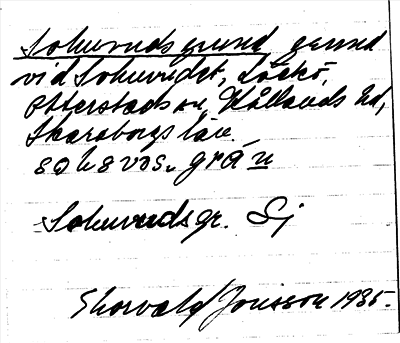 Sohuvudsgrund grund
vid Sohuvudet, Läckö,
Otterstads sn, Kållands hd,
Skaraborgs län.
gr
Sohuvudsgr. Sj
Thorvald Jonsson 1935.